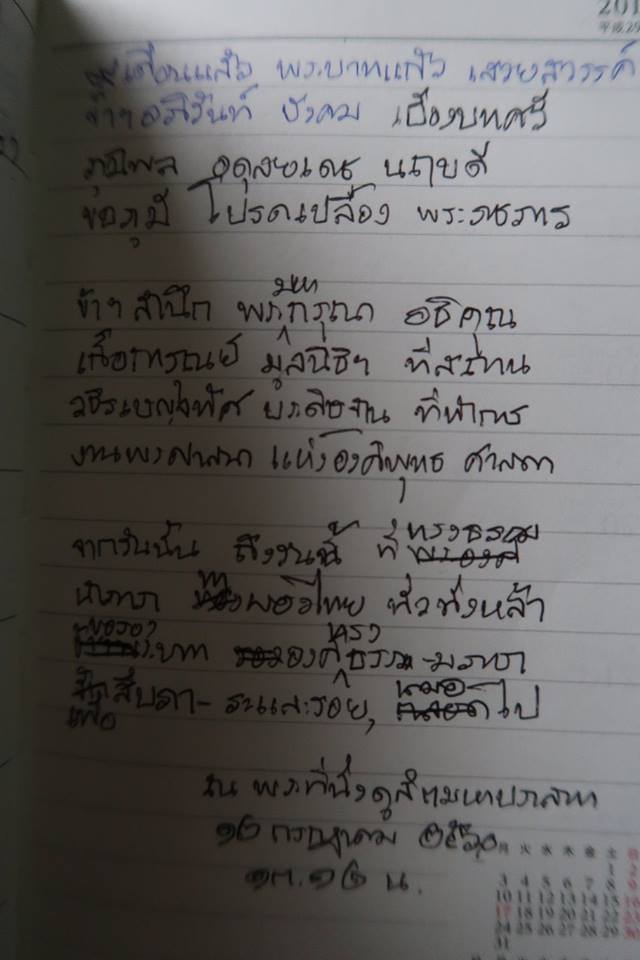 201
平成29
เดือนแล้ว พระบาทแก้ว เสวยสวรรค์
ข้าฯอภิวันท์ บังคม เบื้องบทศรี
ภูมิพล อดุลยเดช นฤบดี
ขอภูมี โปรดเปลื้อง พระภูธร
มหา
ข้าฯ สำนึก พระกรุณา อธิคุณ
เกื้อการุณย์ มูลนิธิฯ ที่สถาน
วชิรเบญจทัศ ประดิษฐาน ที่ทำการ
งานพระศาสนา แห่งองค์พุทธ ศาสดา
จากวันนั้น ถึงวันนี้ ที่ ทรงธรรม
นำพา พ่อไทย ทั่วทั้งหล้า
ทรง
องค์ธรรม-มราชา
เพื่อ สืบภา- ระและรอย, ไป
ณ พระที่นั่งดุสิตมหาปราสาท
๑๒ กรกฎาคม ๒๕๖๐
๑๓.๑๒ น.
月 火 水 木 金 土 日
1 2
3 4 5 6 7 8 9
10 11 12 13 14 15 16
17 18 19 20 21 22 23
24 25 26 27 28 29 30
31